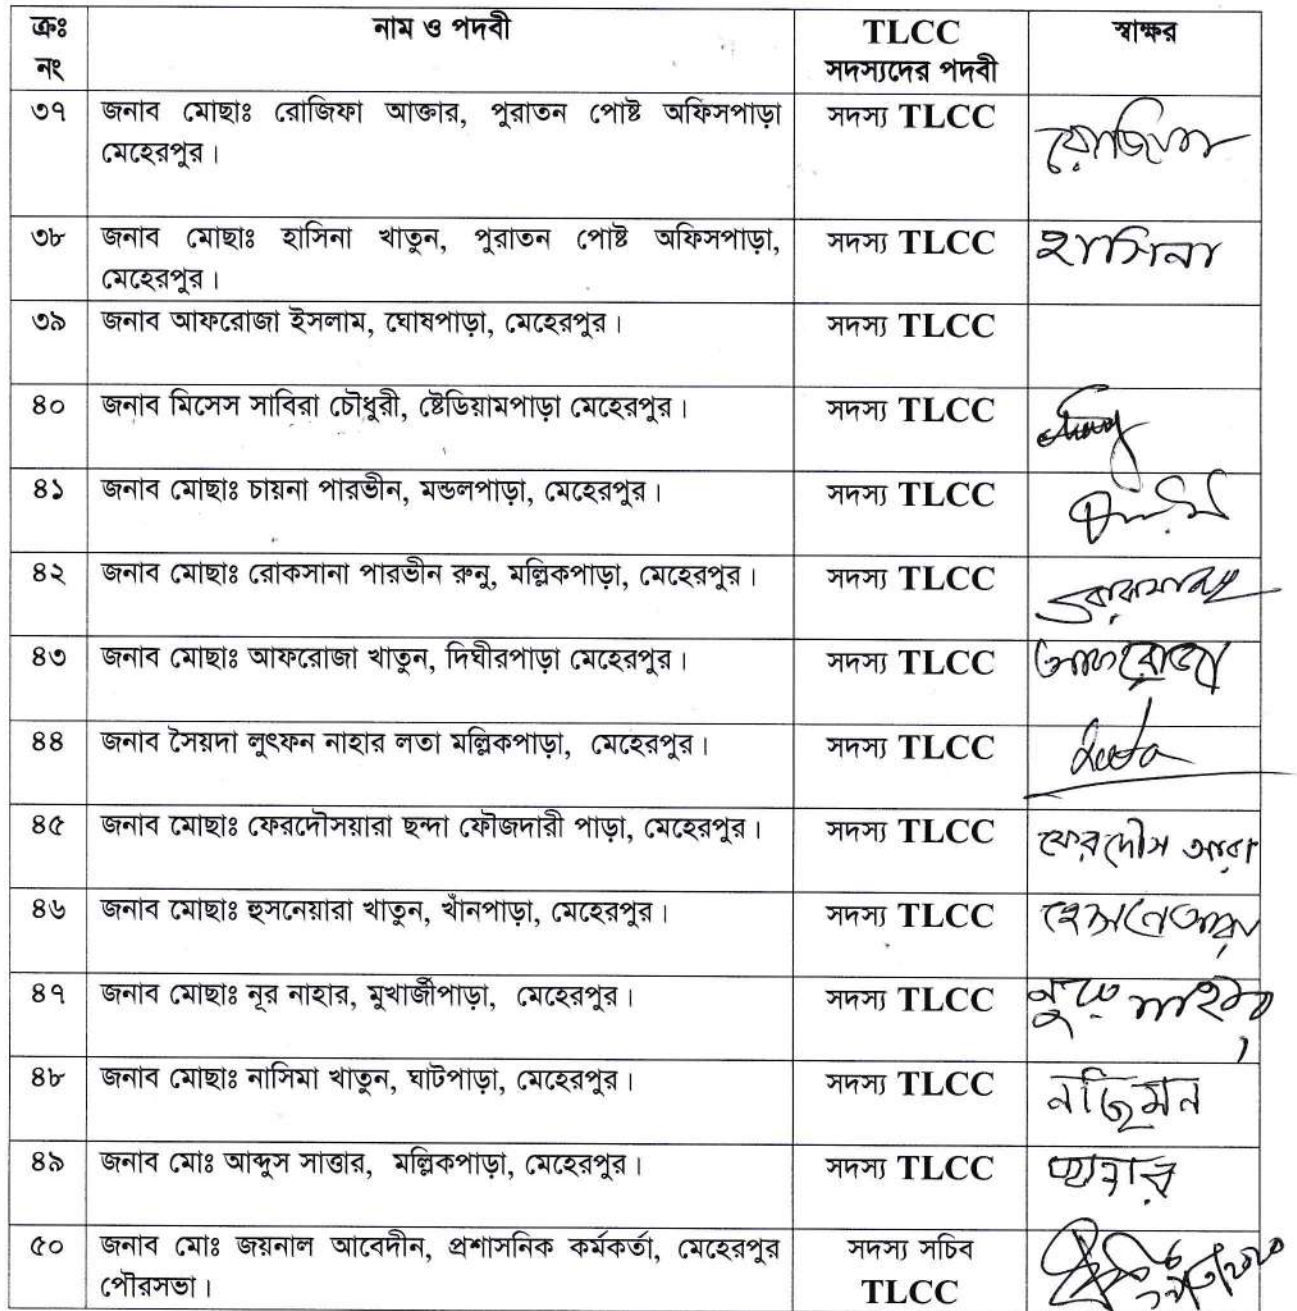 ক্রঃ নং নাম ও পদবী TLCC সদস্যদের পদবী স্বাক্ষর
৩৭ জনাব মোছাঃ রোজিফা আক্তার, পুরাতন পোষ্ট অফিসপাড়া সদস্য TLCC
মেহেরপুর।
৩৮ জনাব মোছাঃ হাসিনা খাতুন, পুরাতন পোষ্ট অফিসপাড়া, সদস্য TLCC হাসিনা
মেহেরপুর।
৩৯ জনাব আফরোজা ইসলাম, ঘোষপাড়া, মেহেরপুর। সদস্য TLCC
৪০ জনাব মিসেস সাবিরা চৌধুরী, ষ্টেডিয়ামপাড়া মেহেরপুর। সদস্য TLCC
৪১ জনাব মোছাঃ চায়না পারভীন, মন্ডলপাড়া, মেহেরপুর। সদস্য TLCC
৪২ জনাব মোছাঃ রোকসানা পারভীন রুনু, মল্লিকপাড়া, মেহেরপুর। সদস্য TLCC
৪৩ জনাব মোছাঃ আফরোজা খাতুন, দিঘীরপাড়া মেহেরপুর। সদস্য TLCC আফরোজা
৪৪ জনাব সৈয়দা লুৎফন নাহার লতা মল্লিকপাড়া, মেহেরপুর। সদস্য TLCC
৪৫ জনাব মোছাঃ ফেরদৌসয়ারা ছন্দা ফৌজদারী পাড়া, মেহেরপুর। সদস্য TLCC ফেরদৌস আরা
৪৬ জনাব মোছাঃ হুসনেয়ারা খাতুন, খাঁনপাড়া, মেহেরপুর। সদস্য TLCC
৪৭ জনাব মোছাঃ নূর নাহার, মুখার্জীপাড়া, মেহেরপুর। সদস্য TLCC
৪৮ জনাব মোছাঃ নাসিমা খাতুন, ঘাটপাড়া, মেহেরপুর। সদস্য TLCC নাছিমন
৪৯ জনাব মোঃ আব্দুস সাত্তার, মল্লিকপাড়া, মেহেরপুর। সদস্য TLCC
৫০ জনাব মোঃ জয়নাল আবেদীন, প্রশাসনিক কর্মকর্তা, মেহেরপুর সদস্য সচিব
পৌরসভা। TLCC